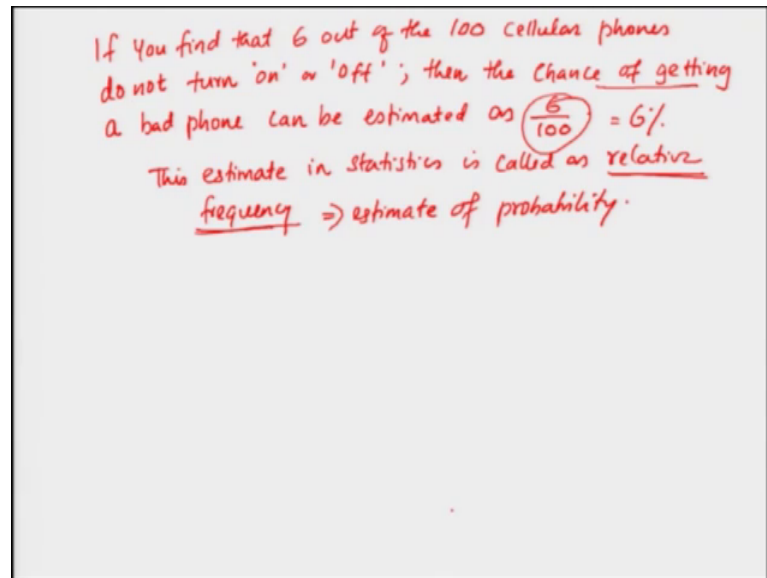 If you find that 6 out of the 100 cellular phones
do not turn 'on' or 'off' ; then the chance of getting
a bad phone can be estimated as 6/100 = 6%.
This estimate in statistics is called as relative
frequency ⇒ estimate of probability.